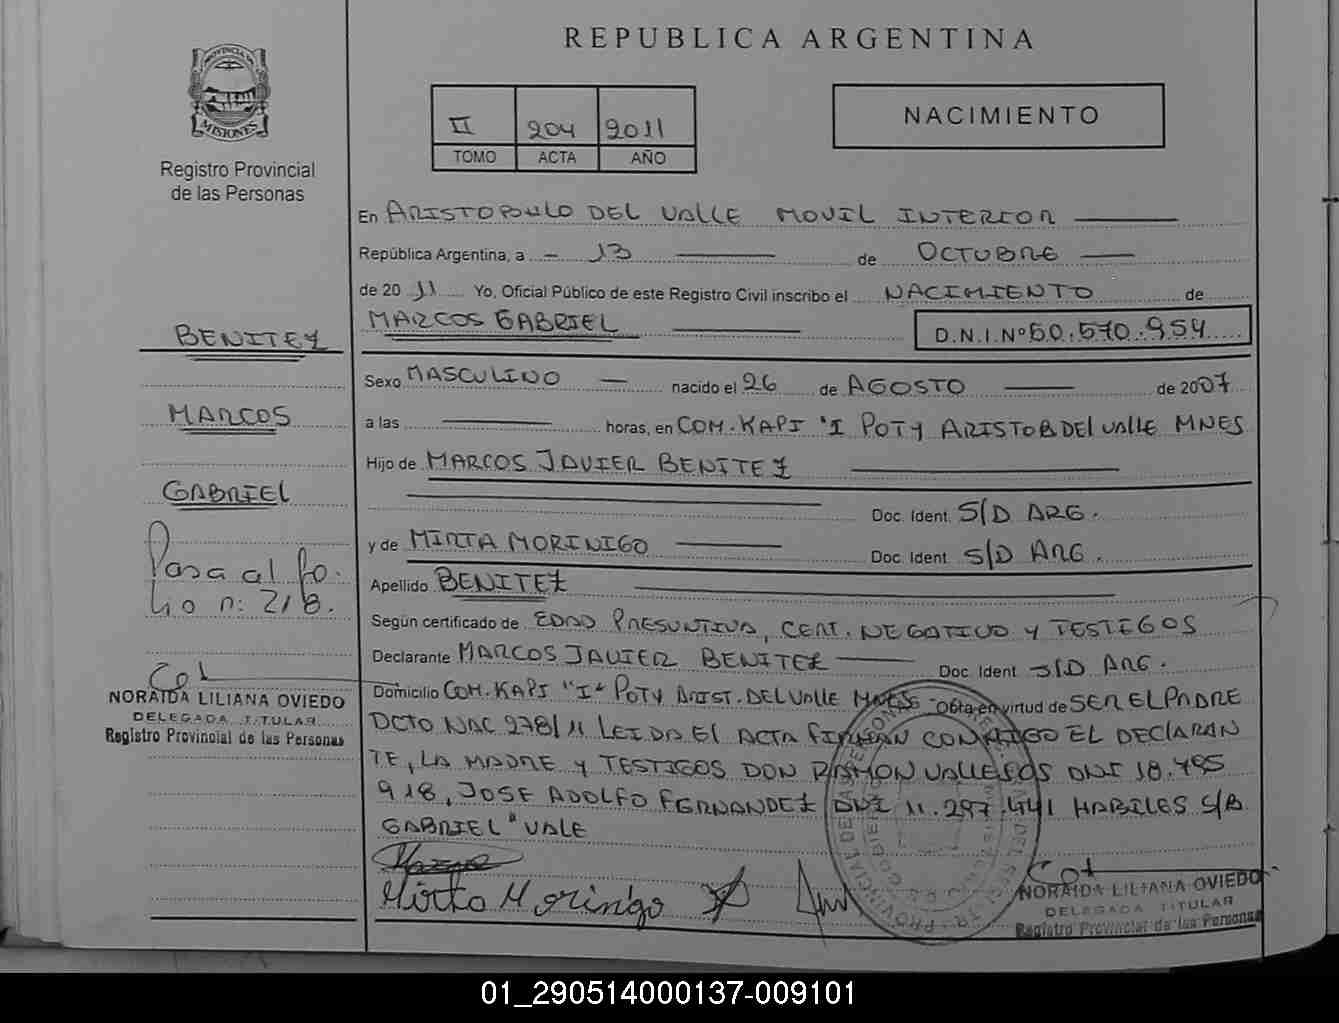 REPUBLICA ARGENTINA
PROVINCIA DE MISIONES
Registro Provincial
de las Personas
II 204 2011
TOMO ACTA AÑO
NACIMIENTO
En ARISTOBULO DEL VALLE MOVIL INTERIOR
República Argentina, a 13 de OCTUBRE
de 20 11 Yo, Oficial Público de este Registro Civil inscribo el NACIMIENTO de
MARCOS GABRIEL D.N.I.Nº 50.570.954
BENITEZ
Sexo MASCULINO nacido el 26 de AGOSTO de 2007
MARCOS
a las horas, en COM. KAPI 'I POTY ARISTOB DEL VALLE MNES
Hijo de MARCOS JAVIER BENITEZ
GABRIEL
Doc. Ident. S/D ARG.
y de MIRTA MORINIGO Doc. Ident. S/D ARG.
Pasa al fo-
lio n: 218.
Apellido BENITEZ
Según certificado de EDAD PRESUNTIVA, CERT. NEGATIVO Y TESTIGOS
Declarante MARCOS JAVIER BENITEZ Doc. Ident. S/D ARG.
Domicilio COM. KAPI "I" POTY ARIST. DEL VALLE MNES - Obra en virtud de SER EL PADRE
DCTO NAC 278/11 LEIDA EL ACTA FIRMAN CONMIGO EL DECLARAN
TE, LA MADRE Y TESTIGOS DON RAMON VALLEJOS DNI 18.495
918, JOSE ADOLFO FERNANDEZ DNI 11.297.441 HABILES S/B
GABRIEL" VALE
NORAIDA LILIANA OVIEDO
DELEGADA TITULAR
Registro Provincial de las Personas
Mirta Moringo
NORAIDA LILIANA OVIEDO
DELEGADA TITULAR
Registro Provincial de las Personas
01_290514000137-009101